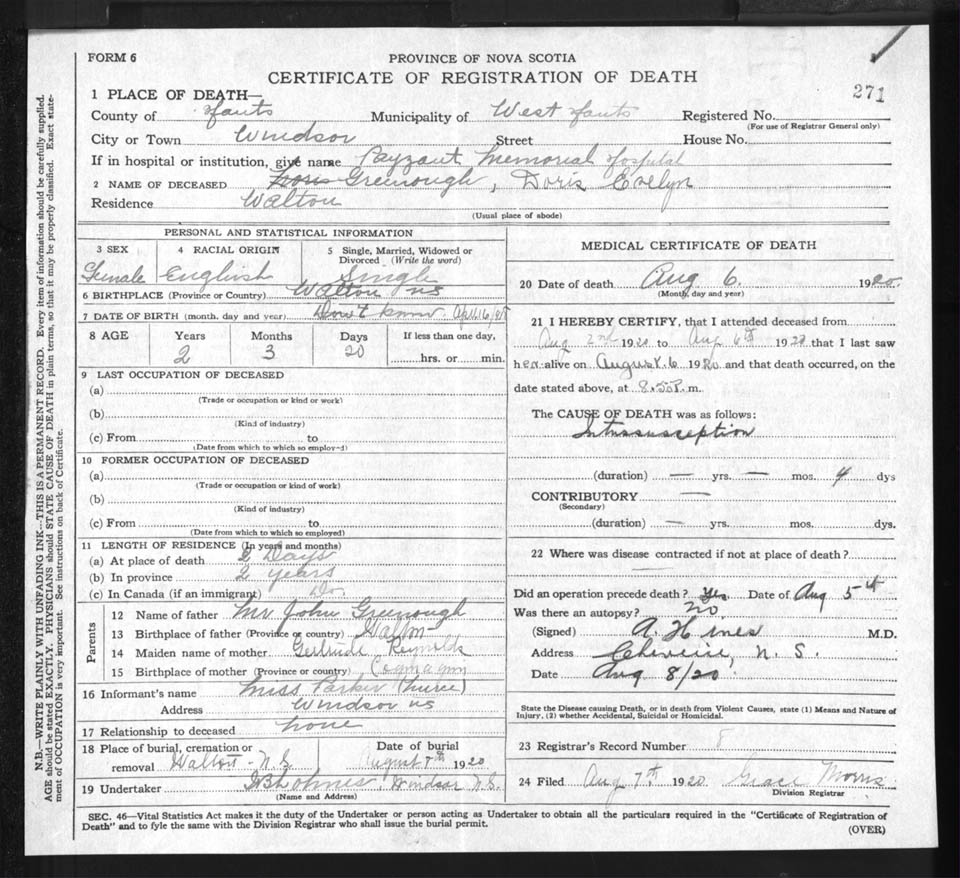 FORM 6
PROVINCE OF NOVA SCOTIA
CERTIFICATE OF REGISTRATION OF DEATH
271
1 PLACE OF DEATH—
County of Hants Municipality of West Hants Registered No.
(For use of Registrar General only)
City or Town Windsor Street House No.
If in hospital or institution, give name Payzant Memorial Hospital
2 NAME OF DECEASED Greenough, Doris Evelyn
Residence Walton
(Usual place of abode)
PERSONAL AND STATISTICAL INFORMATION
3 SEX
Female
4 RACIAL ORIGIN
English
5 Single, Married, Widowed or Divorced (Write the word)
Single
6 BIRTHPLACE (Province or Country) Walton NS
7 DATE OF BIRTH (month, day and year) Don't know April 16/
8 AGE Years Months Days If less than one day,
2 3 20 hrs. or min.
9 LAST OCCUPATION OF DECEASED
(a)
(Trade or occupation or kind or work)
(b)
(Kind of industry)
(c) From to
(Date from which to which so employed)
10 FORMER OCCUPATION OF DECEASED
(a)
(Trade or occupation or kind of work)
(b)
(Kind of industry)
(c) From to
(Date from which to which so employed)
11 LENGTH OF RESIDENCE (In years and months)
(a) At place of death 2 Days
(b) In province 2 years
(c) In Canada (if an immigrant) Do
Parents
12 Name of father Mr John Greenough
13 Birthplace of father (Province or country) Walton
14 Maiden name of mother Gertrude Reynolds
15 Birthplace of mother (Province or country)
16 Informant's name Miss Parker (nurse)
Address Windsor NS
17 Relationship to deceased none
18 Place of burial, cremation or removal Walton - N.S.
Date of burial August 7th 1920
19 Undertaker Windsor N.S.
(Name and Address)
MEDICAL CERTIFICATE OF DEATH
20 Date of death Aug 6. 1920.
(Month, day and year)
21 I HEREBY CERTIFY, that I attended deceased from
Aug 2nd 1920 to Aug 6th 1920 that I last saw
her alive on August 6 1920 and that death occurred, on the
date stated above, at 8.50 P. m.
The CAUSE OF DEATH was as follows:
Intussusception
(duration) — yrs. — mos. 4 dys
CONTRIBUTORY —
(Secondary)
(duration) — yrs. mos. dys.
22 Where was disease contracted if not at place of death?
—
Did an operation precede death? Yes Date of Aug 5th
Was there an autopsy? No
(Signed) A. Hines M.D.
Address Cheverie, N. S.
Date Aug 8/20
State the Disease causing Death, or in death from Violent Causes, state (1) Means and Nature of
Injury, (2) whether Accidental, Suicidal or Homicidal.
23 Registrar's Record Number 8
24 Filed Aug 7th 1920 Grace Morris
Division Registrar
SEC. 46—Vital Statistics Act makes it the duty of the Undertaker or person acting as Undertaker to obtain all the particulars required in the "Certificate of Registration of
Death" and to fyle the same with the Division Registrar who shall issue the burial permit.
(OVER)
N.B.—WRITE PLAINLY WITH UNFADING INK—THIS IS A PERMANENT RECORD. Every item of information should be carefully supplied.
AGE should be stated EXACTLY. PHYSICIANS should STATE CAUSE OF DEATH in plain terms, so that it may be properly classified. Exact state-
ment of OCCUPATION is very important. See instructions on back of Certificate.